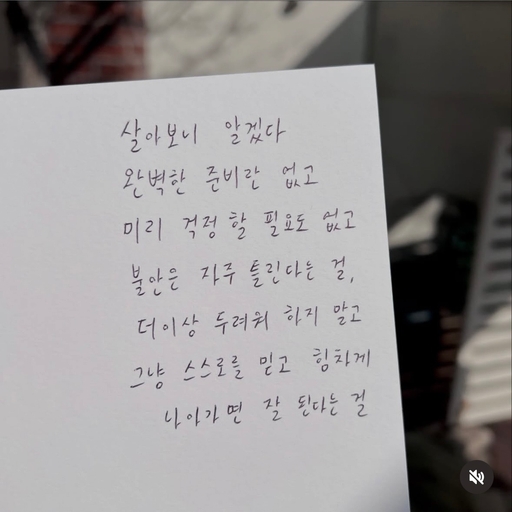 살아보니 알겠다
완벽한 준비란 없고
미리 걱정 할 필요도 없고
불안은 자주 틀린다는 걸,
더이상 두려워 하지 말고
그냥 스스로를 믿고 힘차게
나아가면 잘 된다는 걸